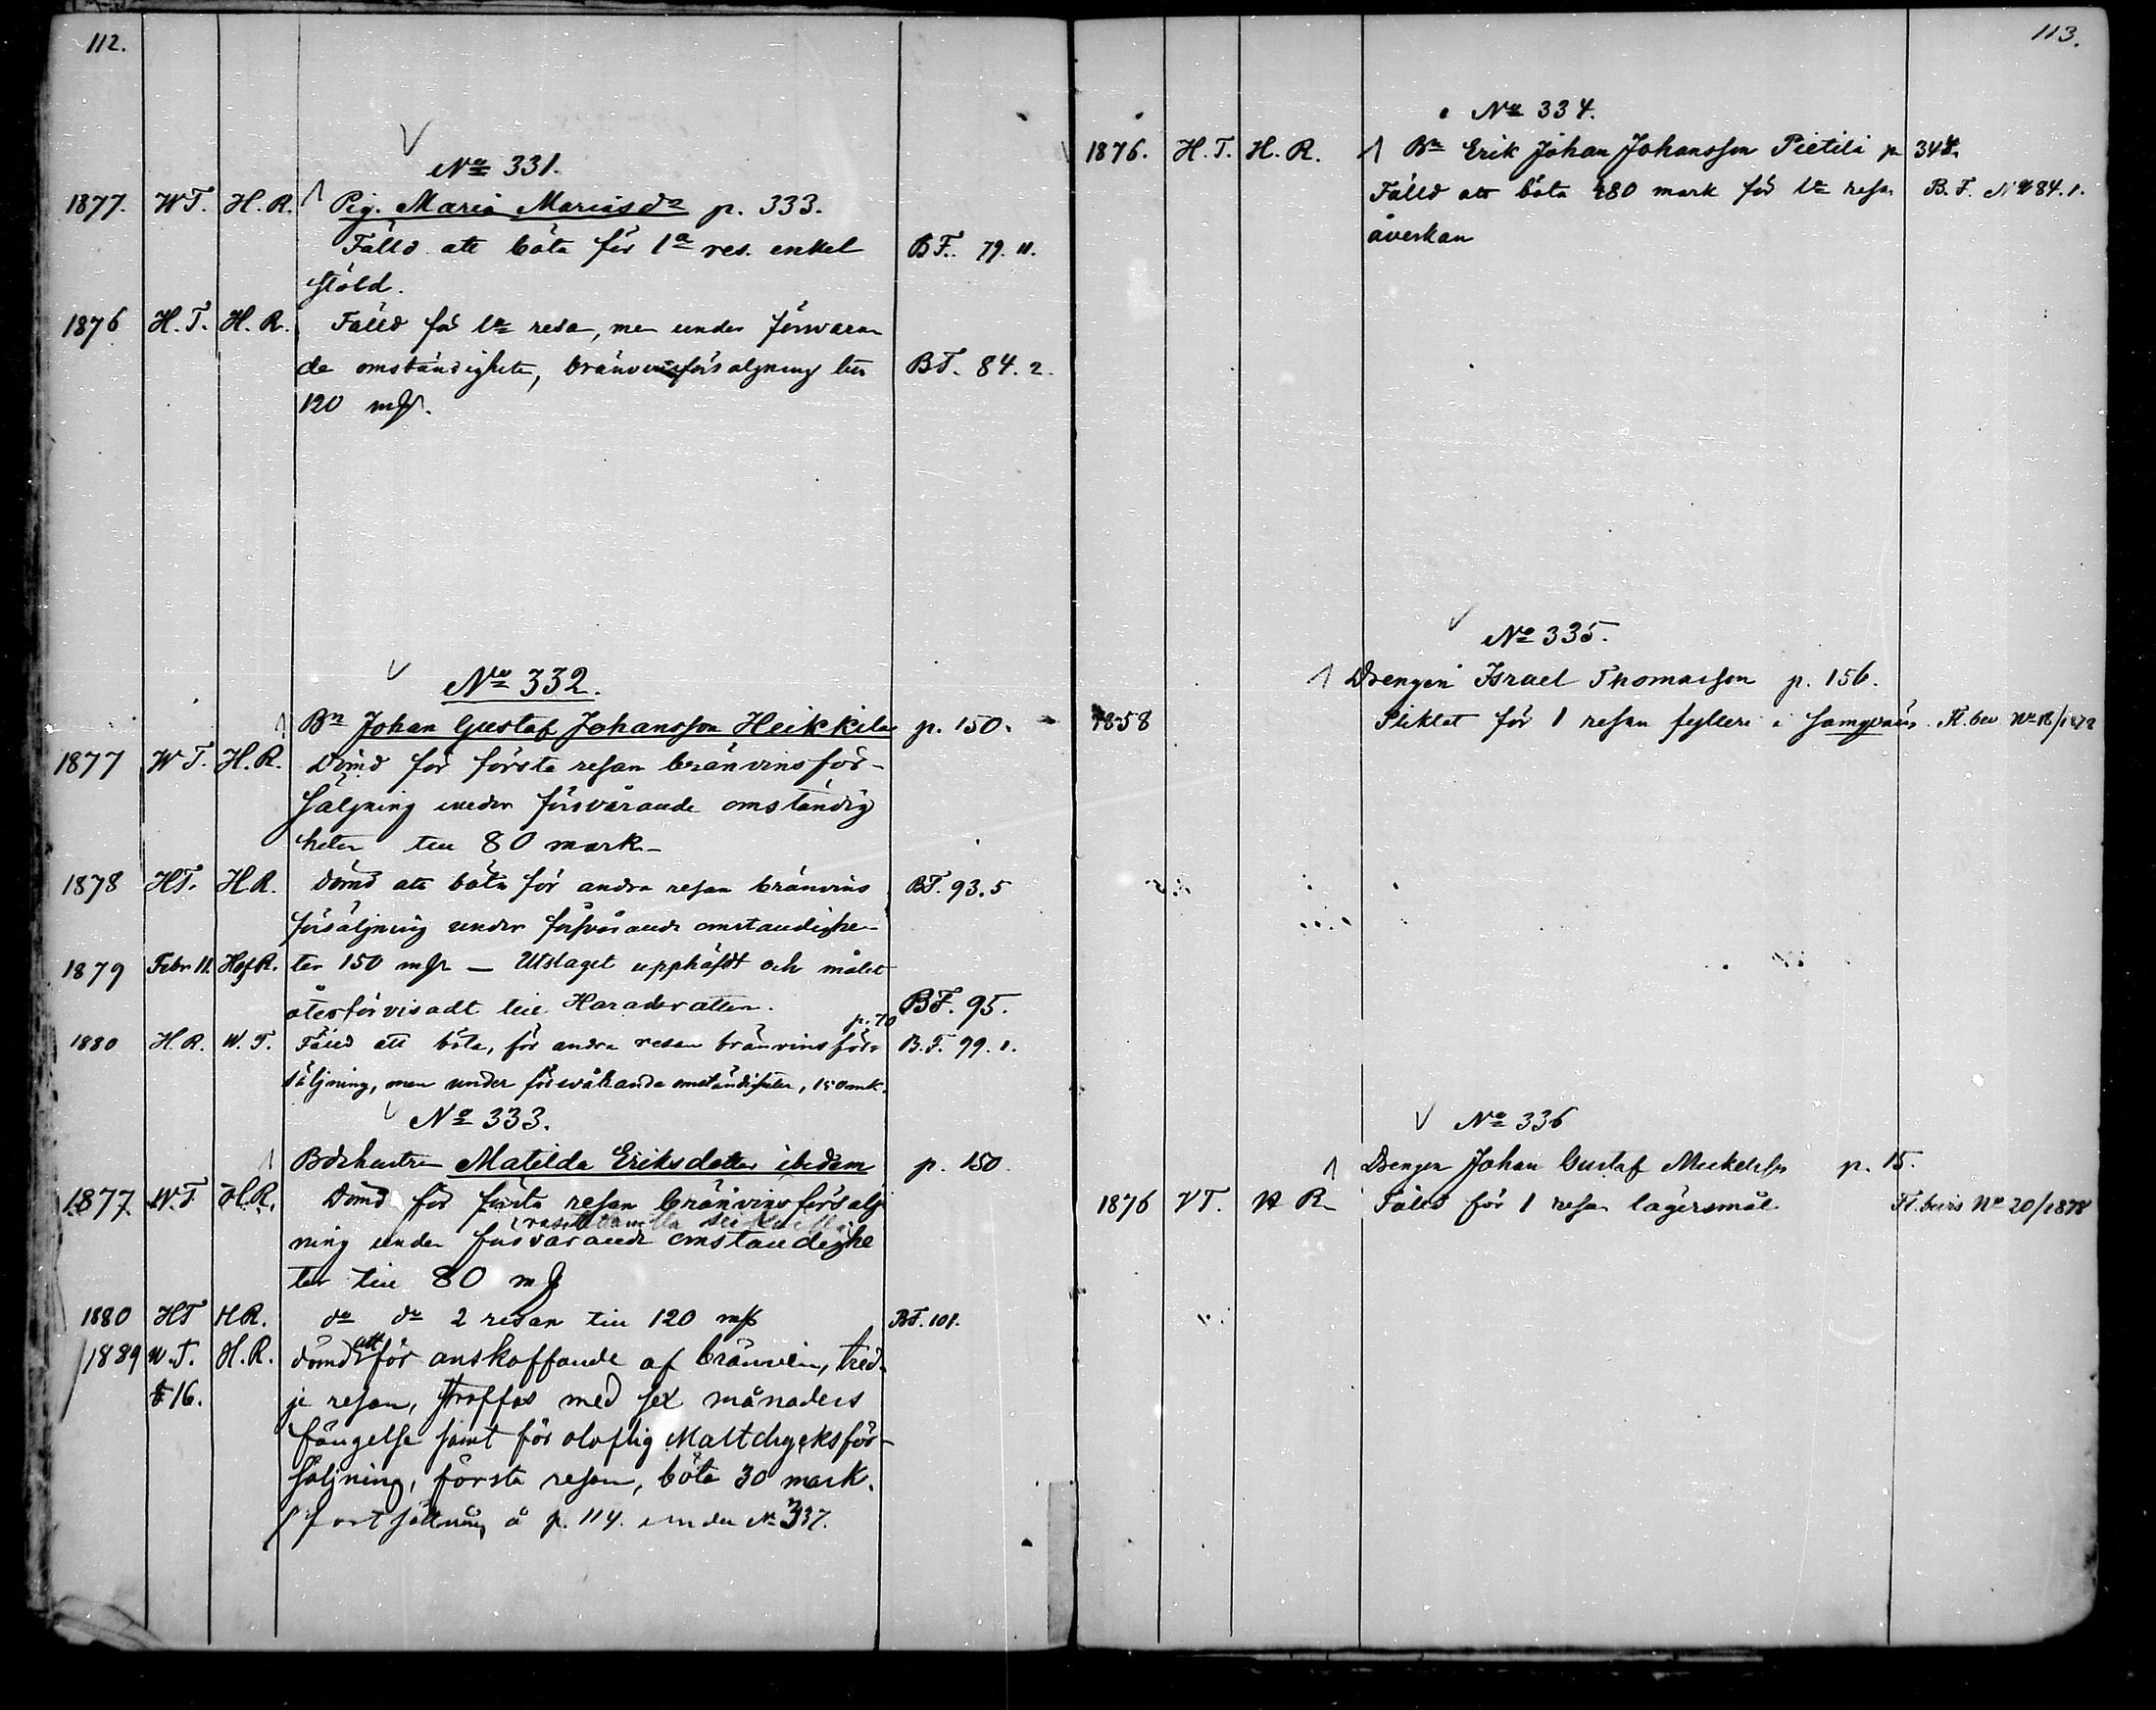 112.
No 331.
1877. W T. H. R. Pig. Maria Mariasdr p. 333.
Fälld att böta för 1a res. enkel B F. 79. 11.
stöld.
1876 H. T. H. R. Fälld för 1a resa, men under försvaran
de omständigheter, bränvinsförsäljning till B F. 84. 2.
120 mk.
No 332.
Bn Johan Gustaf Johansson Heikkilä p. 150.
1877 W T. H. R. Dömd för första resan bränvinsför-
säljning under försvårande omständig
heter till 80 mark-
1878 HT. H R. dömd att böta för andra resan bränvins BF. 93. 5
försäljning under försvårande omständighe-
1879 Febr 11. Hof R. ter 150 mk - Utslaget upphäfdt och målet
återförvisadt till Häradsrätten. BF. 95.
p. 70
1880 H. R. W. T. Fälld att böta, för andra resan bränvinsför- B. F. 99. 1.
säljning, men under försvårande omständigheter, 150 mk.
No 333.
Bdehustrun Matilda Eriksdotter ibidem p. 150.
1877. W. T H. R. Dömd för första resan bränvinsförsälj
ning under försvarande omständighe
ter till 80 mk
1880 HT H R. do do 2 resan till 120 mk BF. 101.
1889 W. T. H. R. dömd att för anskaffande af bränvin, tred-
§ 16. je resan, straffas med sex månaders
fängelse samt för oloflig Maltdrycksför-
säljning, första resan, böta 30 mark.
fortsättning å p. 114. under No 337.
113.
No 334.
1876. H. T. H. R. Bn Erik Johan Johansson Pietilä p 344.
Fälld att böta 480 mark för 1a resan B. F. No 84. 1.
åverkan
No 335.
Drengen Israel Thomasson p. 156.
1858 Pliktat för 1 resan fylleri i samqväm Fl. bev No 18/1878
No 336
Drengen Johan Gustaf Mickelss p. 15.
1876 VT. H R- Fälld för 1 resan lägersmål Fl. bevis No 20/1878